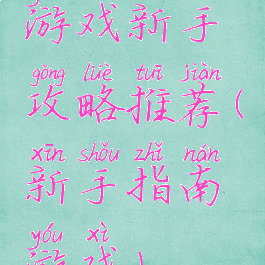 游戏新手
gōng lüè tuī jiàn
攻略推荐(
xīn shǒu zhǐ nán
新手指南
yóu xì
游戏)